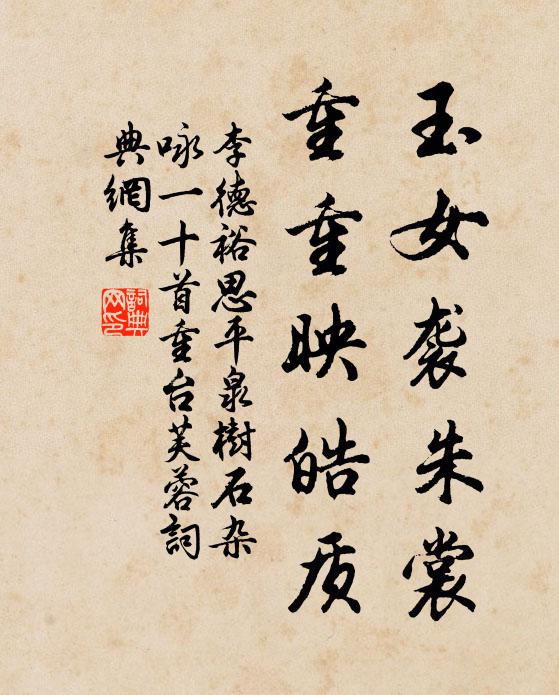 玉女袭朱裳
重重映皓质
李德裕思平泉樹石杂
咏一十首重台芙蓉詞
典網集
詞典
网印